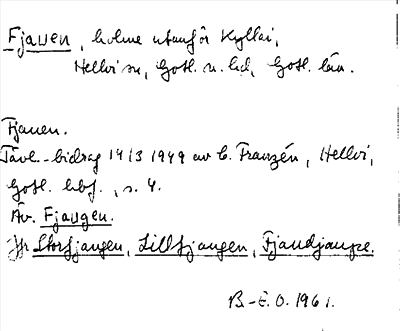 Fjauen, holme utanför Kyllej,
Hellvi sn, Gotl. n. hd, Gotl. län.
Fjauen.
Tävl.-bidrag 14/3 1949 av C. Franzén, Hellvi,
Gotl. hbf., s. 4.
Äv. Fjaugen.
Jfr Storfjaugen, Lillfjaugen, Fjaudjaupe.
B.-E.O. 1961.